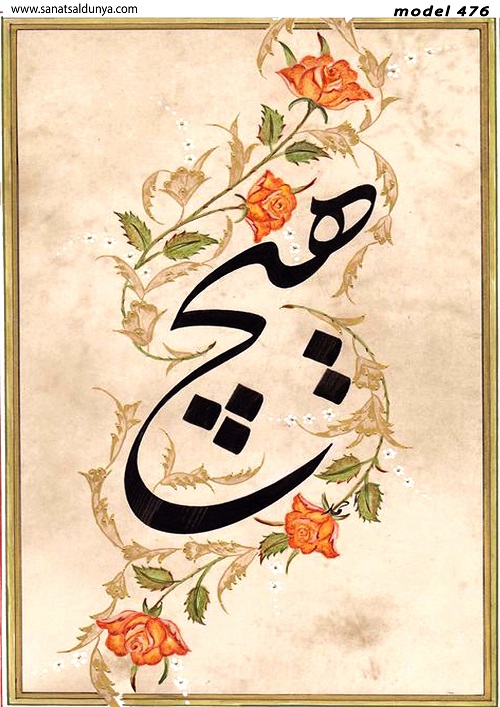 www.sanatsaldunya.com
model 476
هیچ